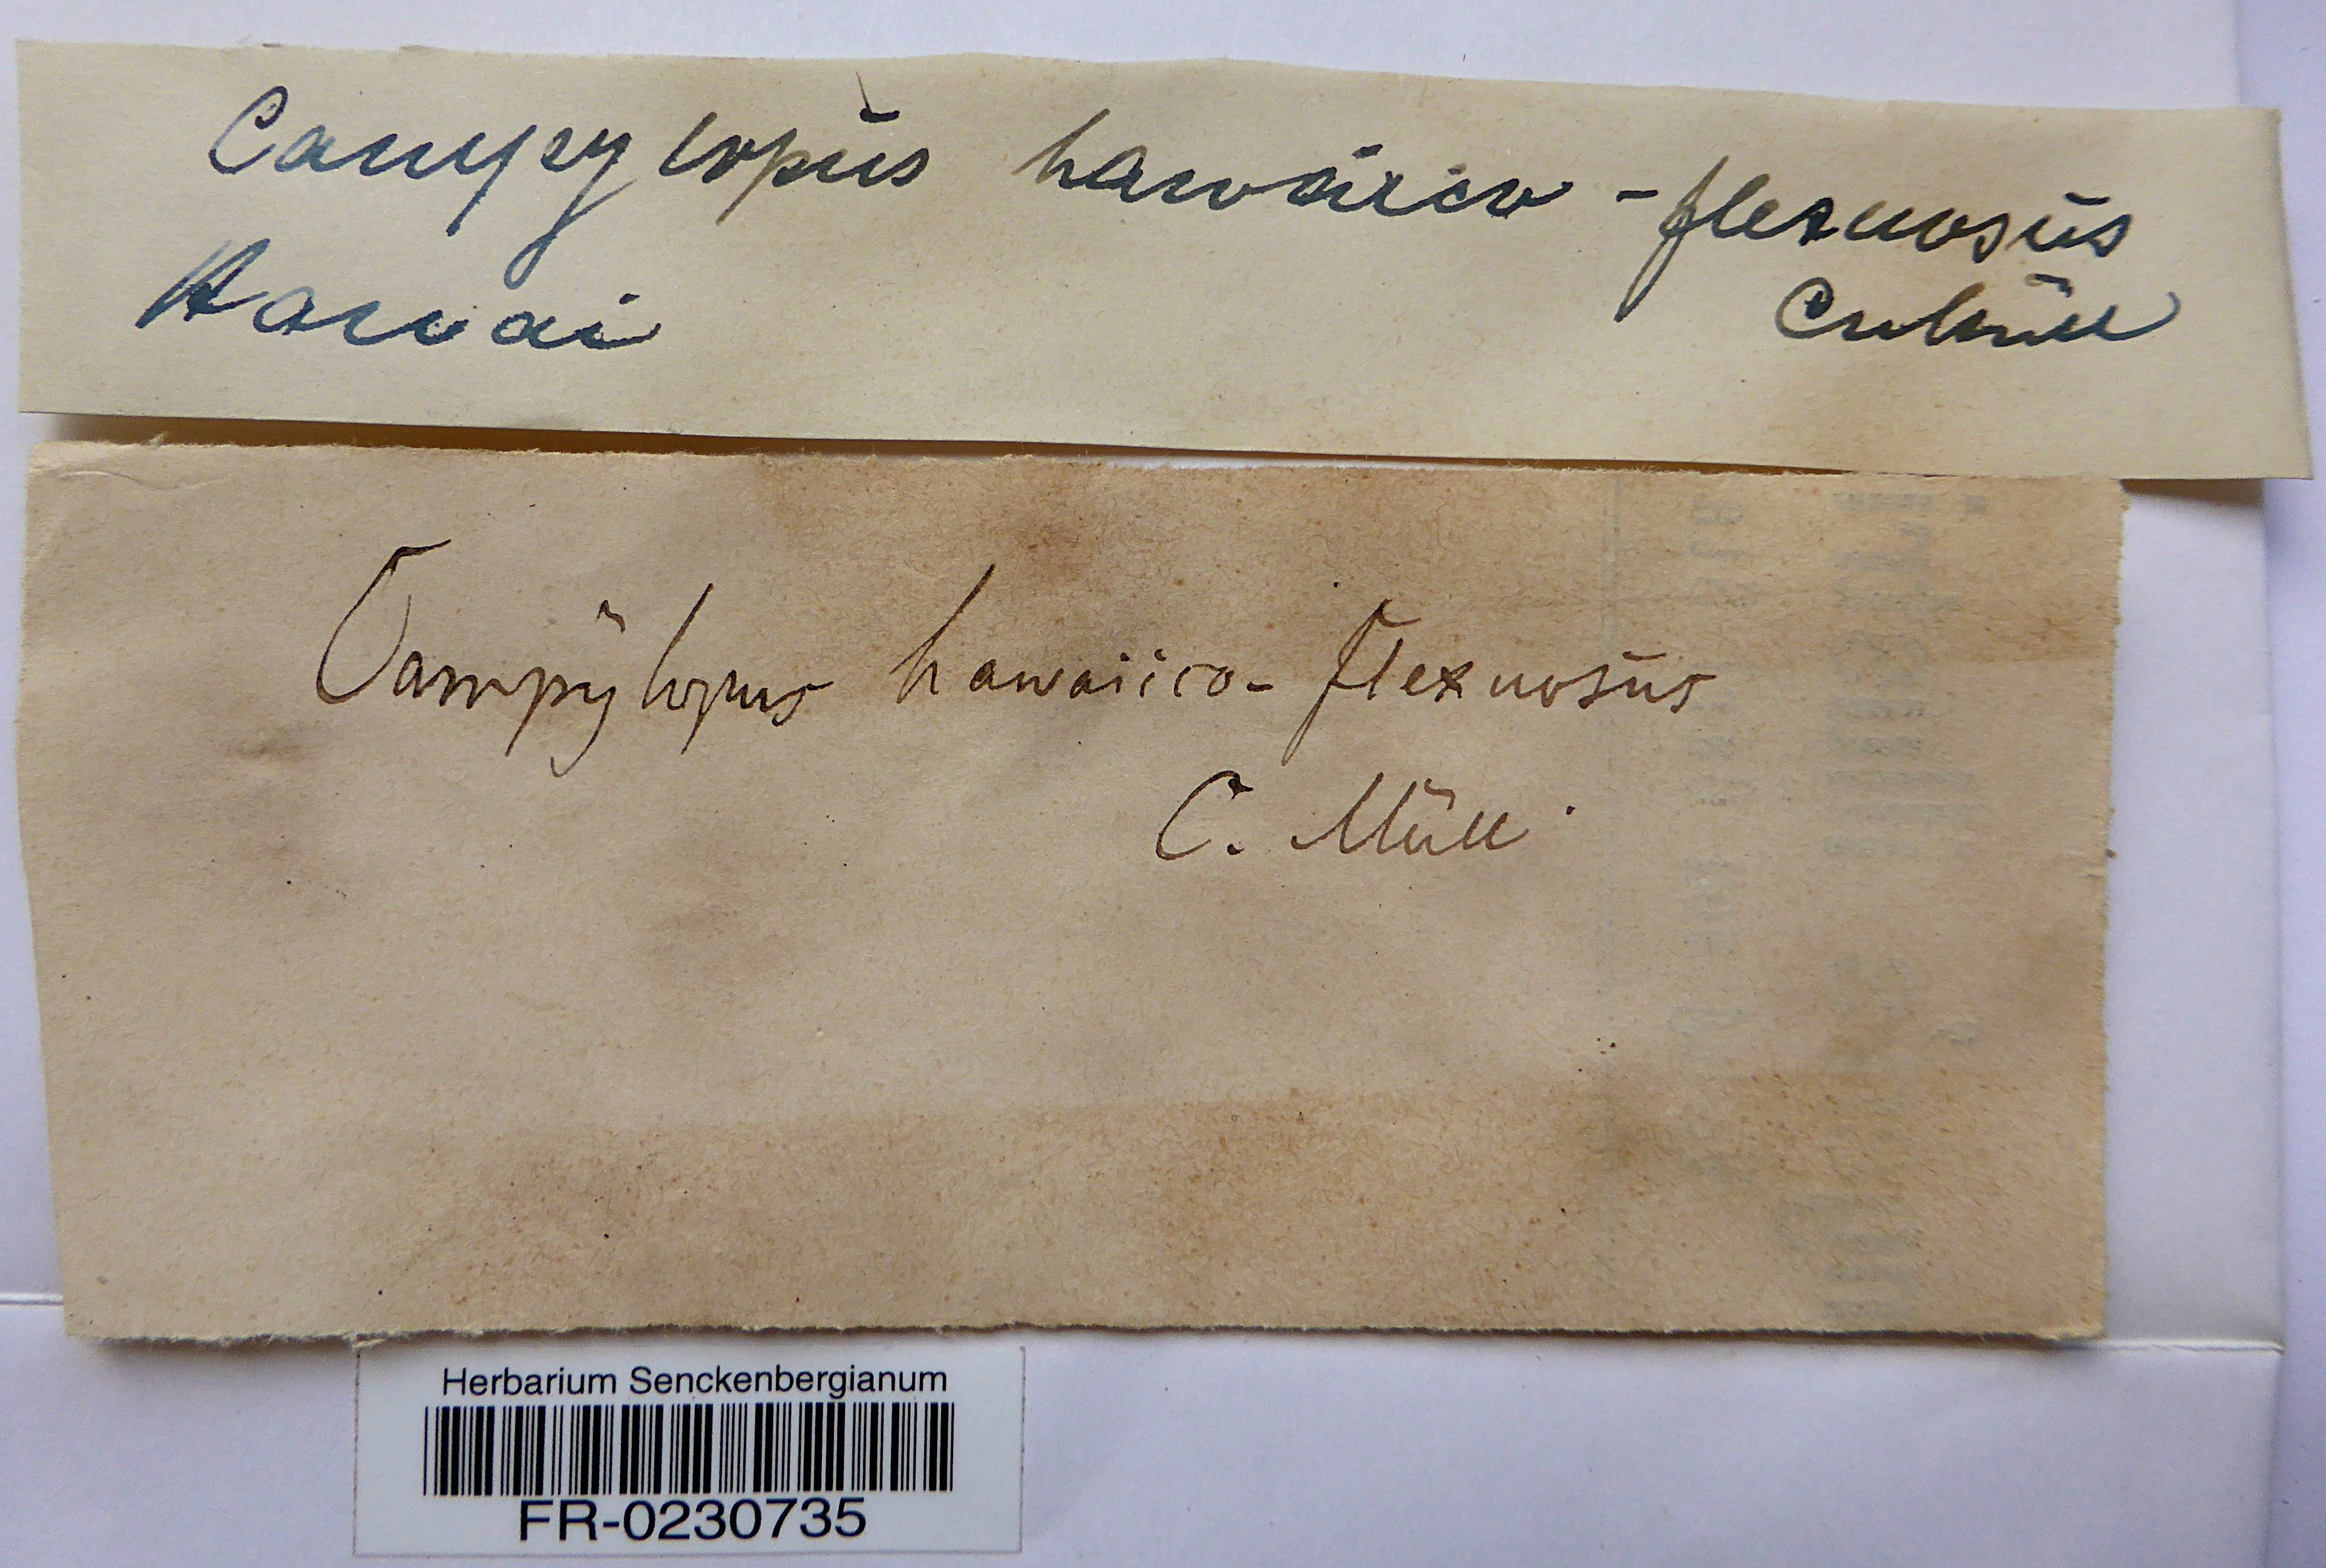 Campylopus hawaiico-flexuosus
CMüll
Hawai
Campylopus hawaiico-flexuosus
C. Müll.
Herbarium Senckenbergianum
FR-0230735